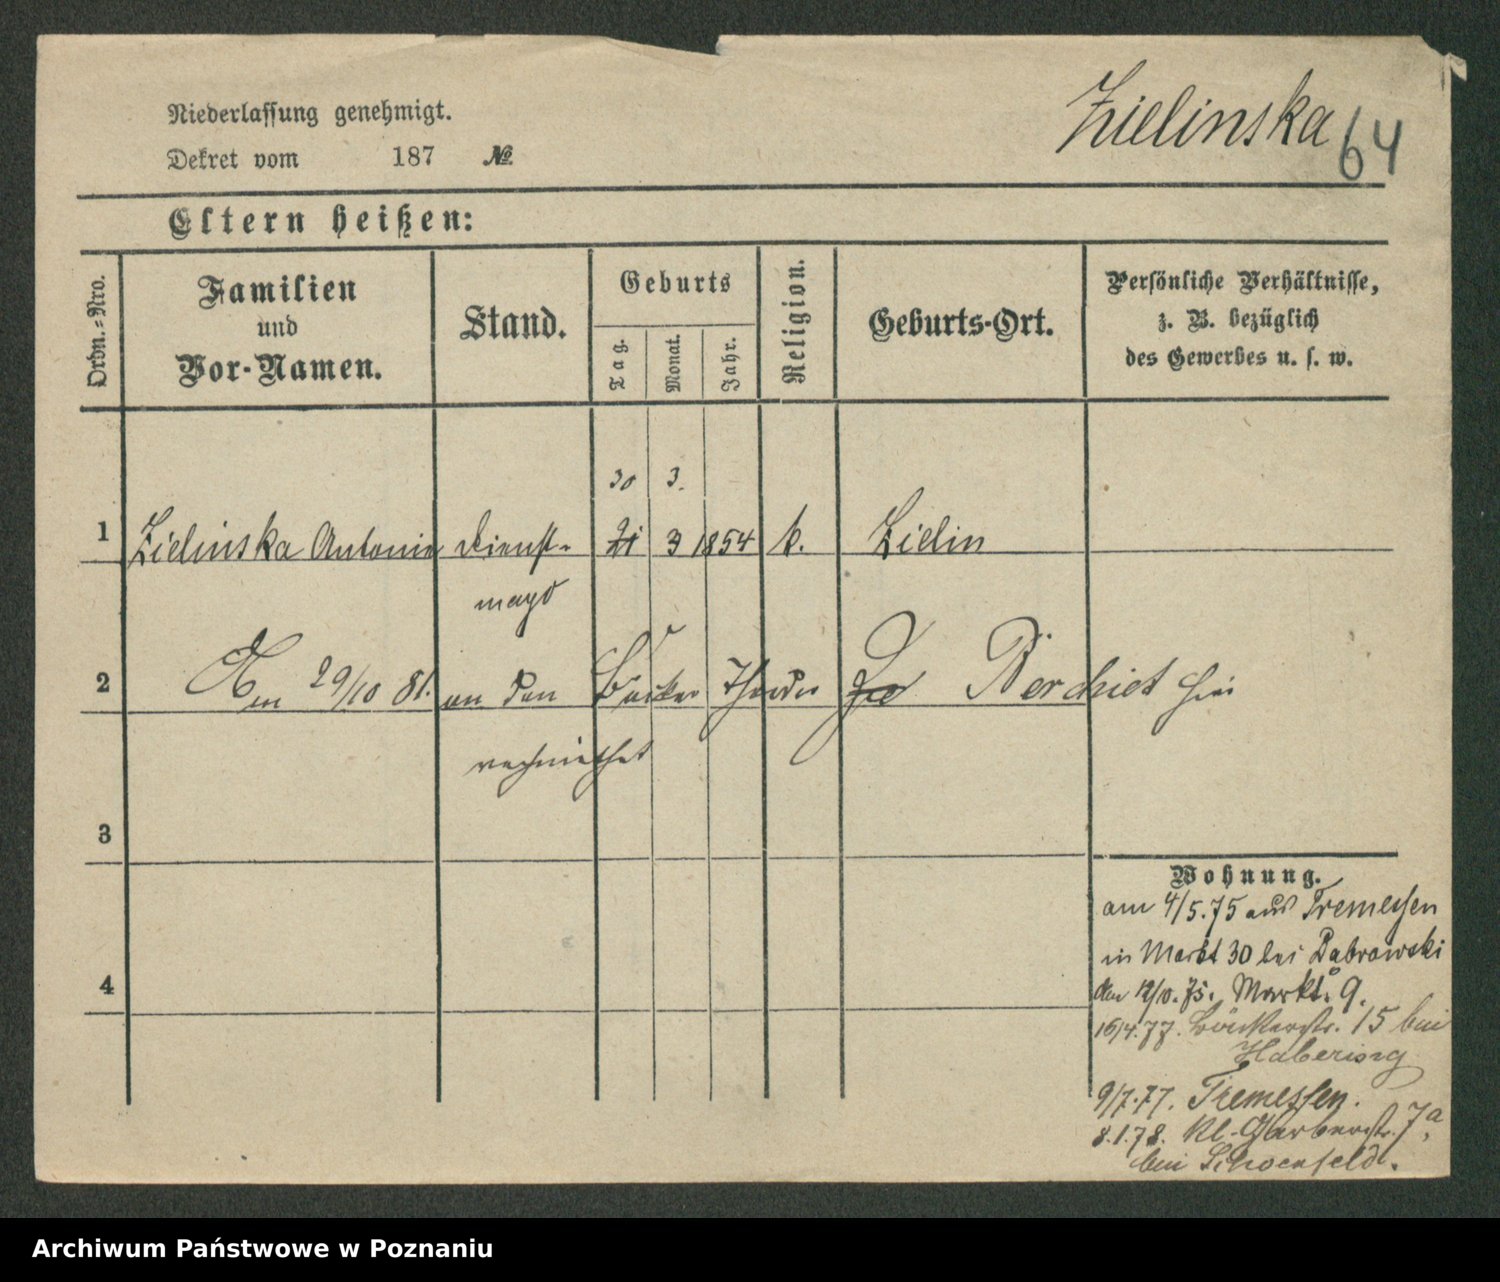 Niederlassung genehmigt.
Zielinska 64
Dekret vom 187 №
Eltern heißen:
Ordn.=Nro.
Familien und Vor-Namen.
Stand.
Geburts
Tag.
Monat.
Jahr.
Religion.
Geburts-Ort.
Persönliche Verhältnisse,
z. B. bezüglich
des Gewerbes u. s. w.
30 3.
1 Zielinska Antonie Dienst- 21 3 1854 k. Zielin
magd
2 Am 29/10 81. an den Bäcker Theodor Zie Bierchiet hier
verheirathet
3
Wohnung.
am 4/5.75 aus Tremessen
in Markt 30 bei Dabrowski
4
den 12/10.75. Markt 9.
16/4.77. Bäckerstr. 15 bei
9/7.77. Tremessen.
8.1.78. Kl. Gerberstr. 7a,
bei Schoenfeld.
Archiwum Państwowe w Poznaniu